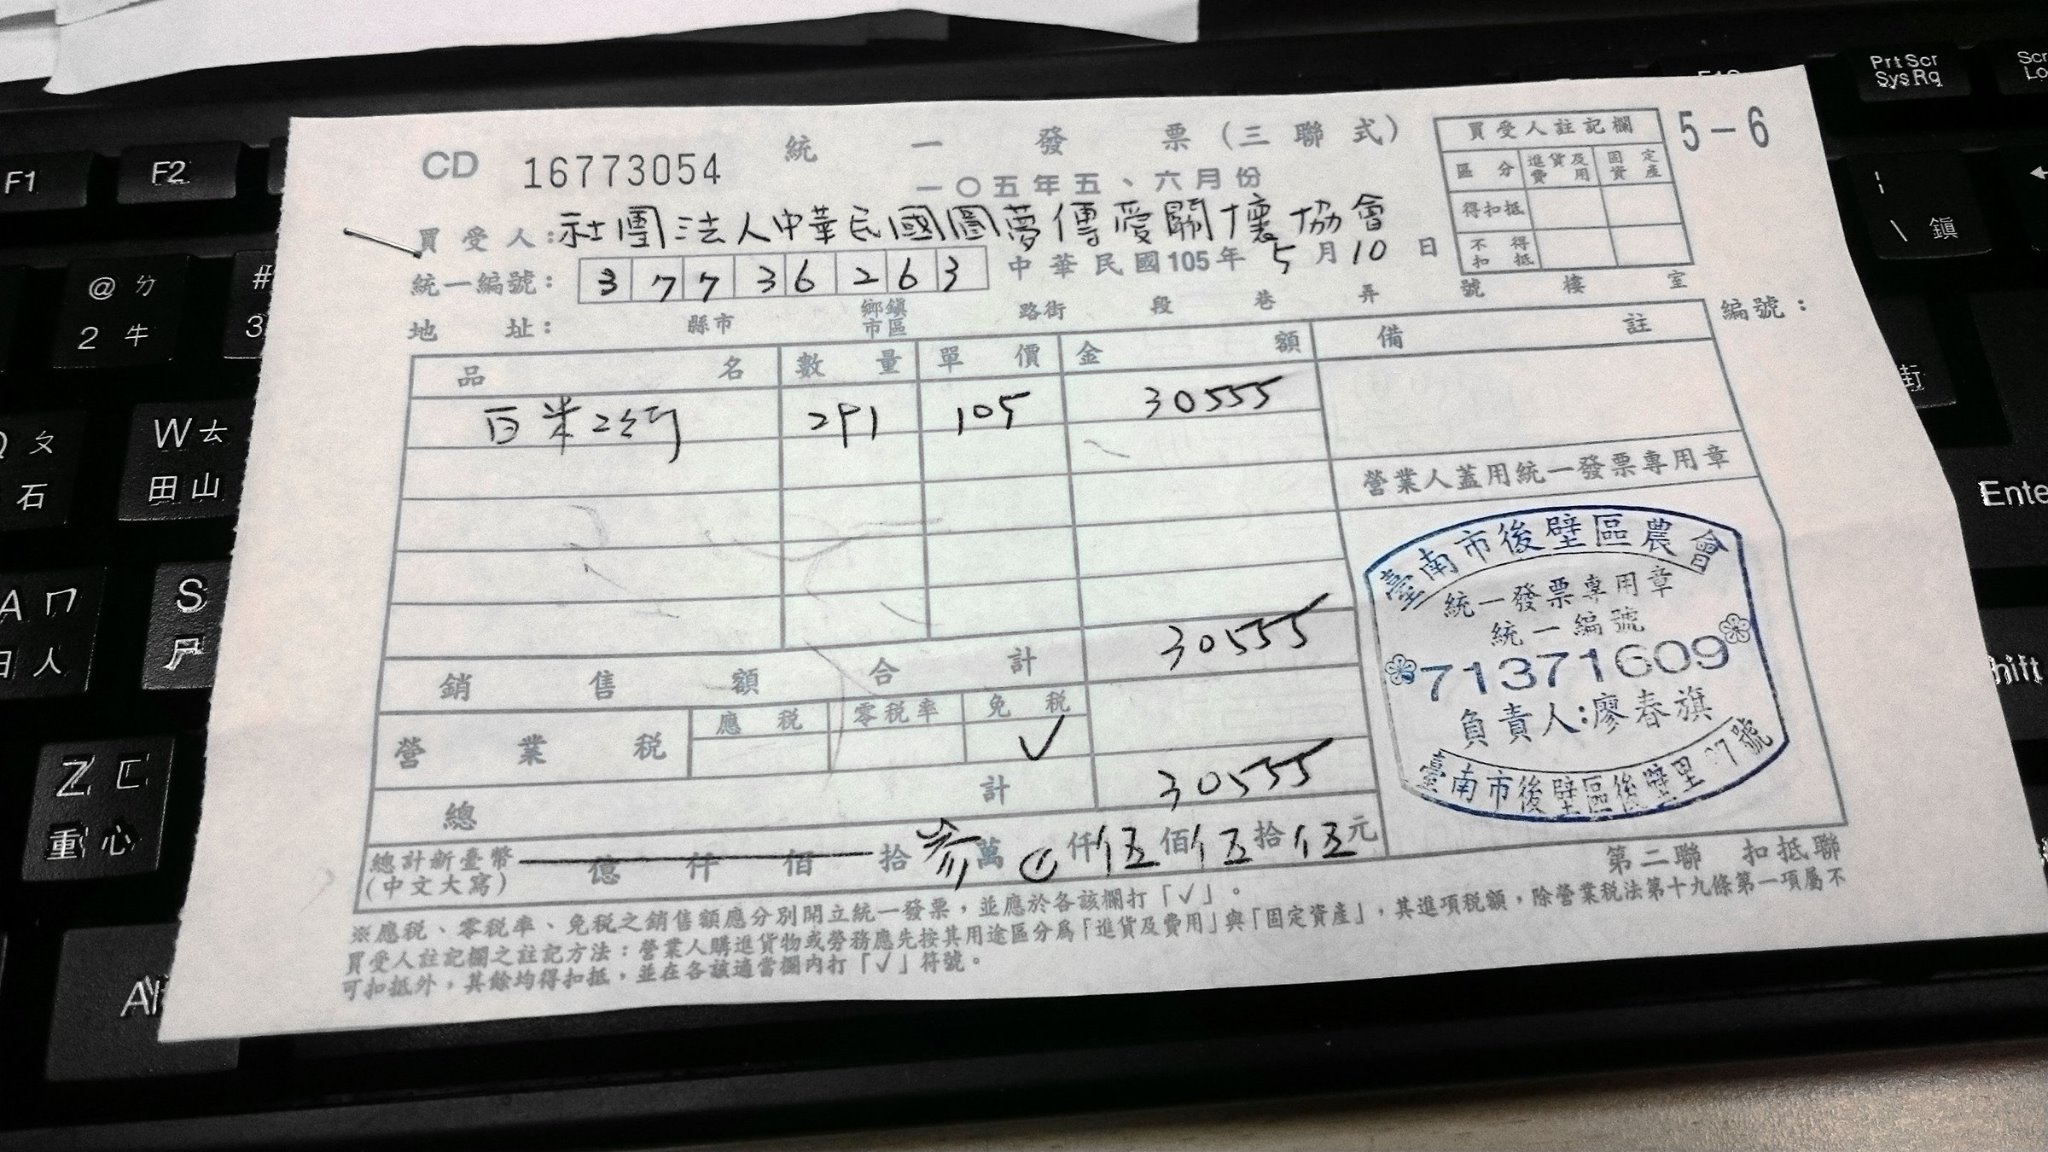 CD 16773054
統一發票(三聯式)
5-6
一〇五年五、六月份
買受人註記欄
區分 進貨及費用 固定資產
得扣抵
不得扣抵
買受人:社團法人中華民國圓夢傳愛關懷協會
統一編號: 37736263 中華民國105年5月10日
地址: 縣市 鄉鎮市區 路街 段 巷 弄 號 樓 室
編號:
品名 數量 單價 金額 備註
白米2公斤 291 105 30555
營業人蓋用統一發票專用章
臺南市後壁區農會
統一發票專用章
統一編號
71371609
負責人:廖春旗
臺南市後壁區後壁里 77號
銷售額合計 30555
營業稅 應稅 零稅率 免稅 ✓
總計 30555
總計新臺幣 億 仟 佰 拾 參 萬 0 仟 伍 佰 伍 拾 伍 元
(中文大寫)
第二聯 扣抵聯
※應稅、零稅率、免稅之銷售額應分別開立統一發票,並應於各該欄打「✓」。
買受人註記欄之註記方法:營業人購進貨物或勞務應先按其用途區分為「進貨及費用」與「固定資產」,其進項稅額,除營業稅法第十九條第一項屬不
可扣抵外,其餘均得扣抵,並在各該適當欄內打「✓」符號。
F1
F2
Prt Scr
Sys Rq
@ ㄉ
2 牛
#
3
\ 鎮
ㄆ
石
W ㄊ
田 山
A ㄇ
日 人
S
尸
Z ㄈ
重 心
Alt
Enter
Shift